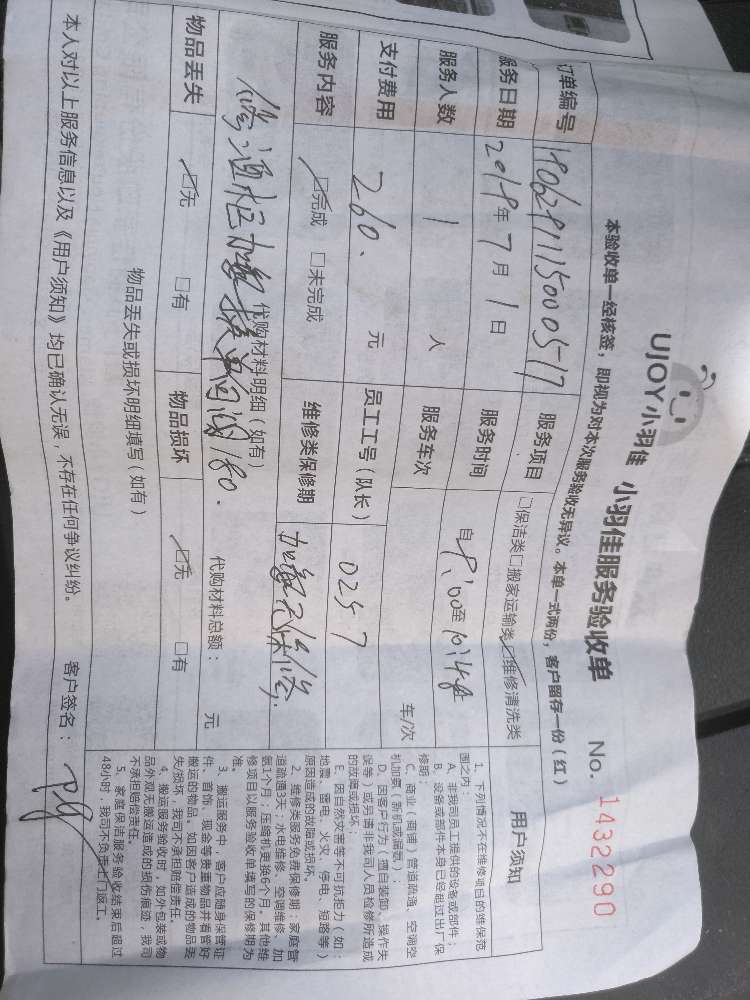 UJOY小羽佳 小羽佳服务验收单 No. 1432290
本验收单一经核签，即视为对本次服务验收无异议。本单一式两份，客户留存一份（红）
订单编号 服务项目 □保洁类□搬家运输类□维修清洗类
服务日期 2019年7月1日 服务时间 自 9:00至
服务人数 1 人 服务车次 车/次
支付费用 260. 元 员工工号（队长） 0257
服务内容 □完成 □未完成 维修类保修期 加氟不保修.
代购材料明细（如有） 代购材料总额： 元
180.
物品丢失 □无 □有 物品损坏 □无 □有
物品丢失或损坏明细填写（如有）
本人对以上服务信息以及《用户须知》均已确认无误，不存在任何争议纠纷。 客户签名：
用户须知
1、下列情况不在维修项目的维保范
围之内：
A、非我司员工提供的设备或部件；
B、设备或部件本身已经超过出厂保
修期；
C、商业（商铺）管道疏通、空调空
机加氟（新机或漏氟）；
D、因客户行为（擅自装卸、操作失
误等）或另请非我司人员检修所造成
的故障或损坏；
E、因自然灾害等不可抗拒力（如：
地震、雷电、火灾、停电、短路等）
原因造成的故障或损坏。
2、维修类服务免费保修期：家庭管
道疏通3天；水电维修、空调维修、加
氨1个月；压缩机更换6个月。其他维
修项目以服务验收单填写的保修期为
准。
3、搬运服务中，客户应随身保管证
件、首饰、现金等贵重物品并看管好
搬运的物品。如因客户造成的物品丢
失/损坏，我司不承担赔偿责任。
4、搬运服务验收时，如外包装或物
品外观无搬运造成的损伤痕迹，我司
不承担赔偿责任。
5、家庭保洁服务验收结束后超过
48小时，我司不负责上门返工。